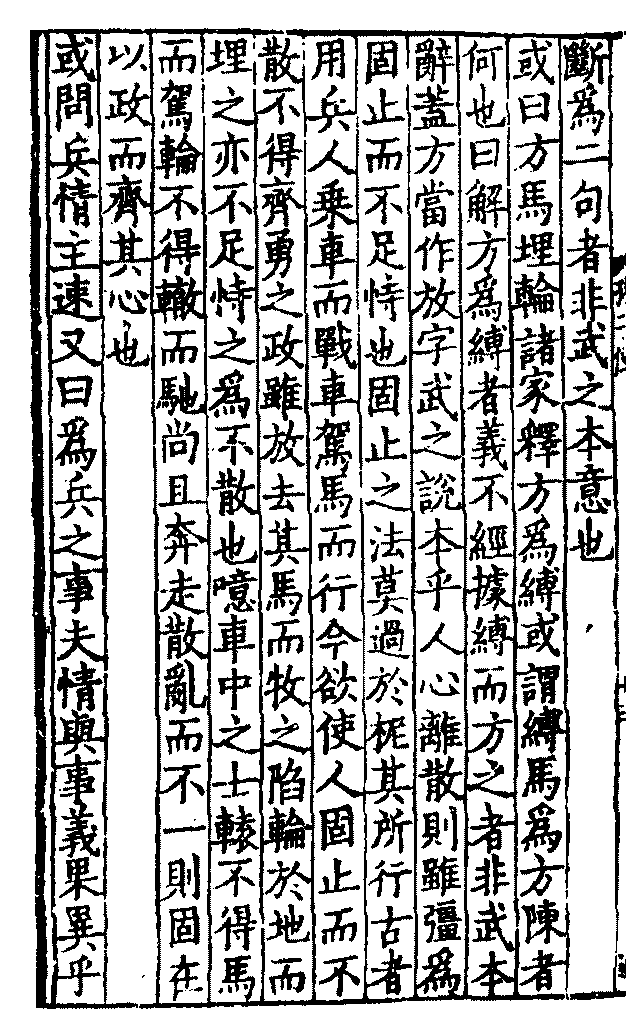 斷爲二句者非武之本意也
或曰方馬埋輪諸家釋方爲縛或謂縛馬爲方陳者
何也曰解方爲縛者義不經據縛而方之者非武本
辭蓋方當作放字武之說本乎人心離散則雖彊爲
固止而不足恃也固止之法莫過於柅其所行古者
用兵人乗車而戰車駕馬而行今欲使人固止而不
散不得齊勇之政雖放去其馬而牧之陷輪於地而
埋之亦不足恃之爲不散也噫車中之士轅不得馬
而駕輪不得轍而馳尚且奔走散亂而不一則固在
以政而齊其心也
或問兵情主速又曰爲兵之事夫情與事義果異乎